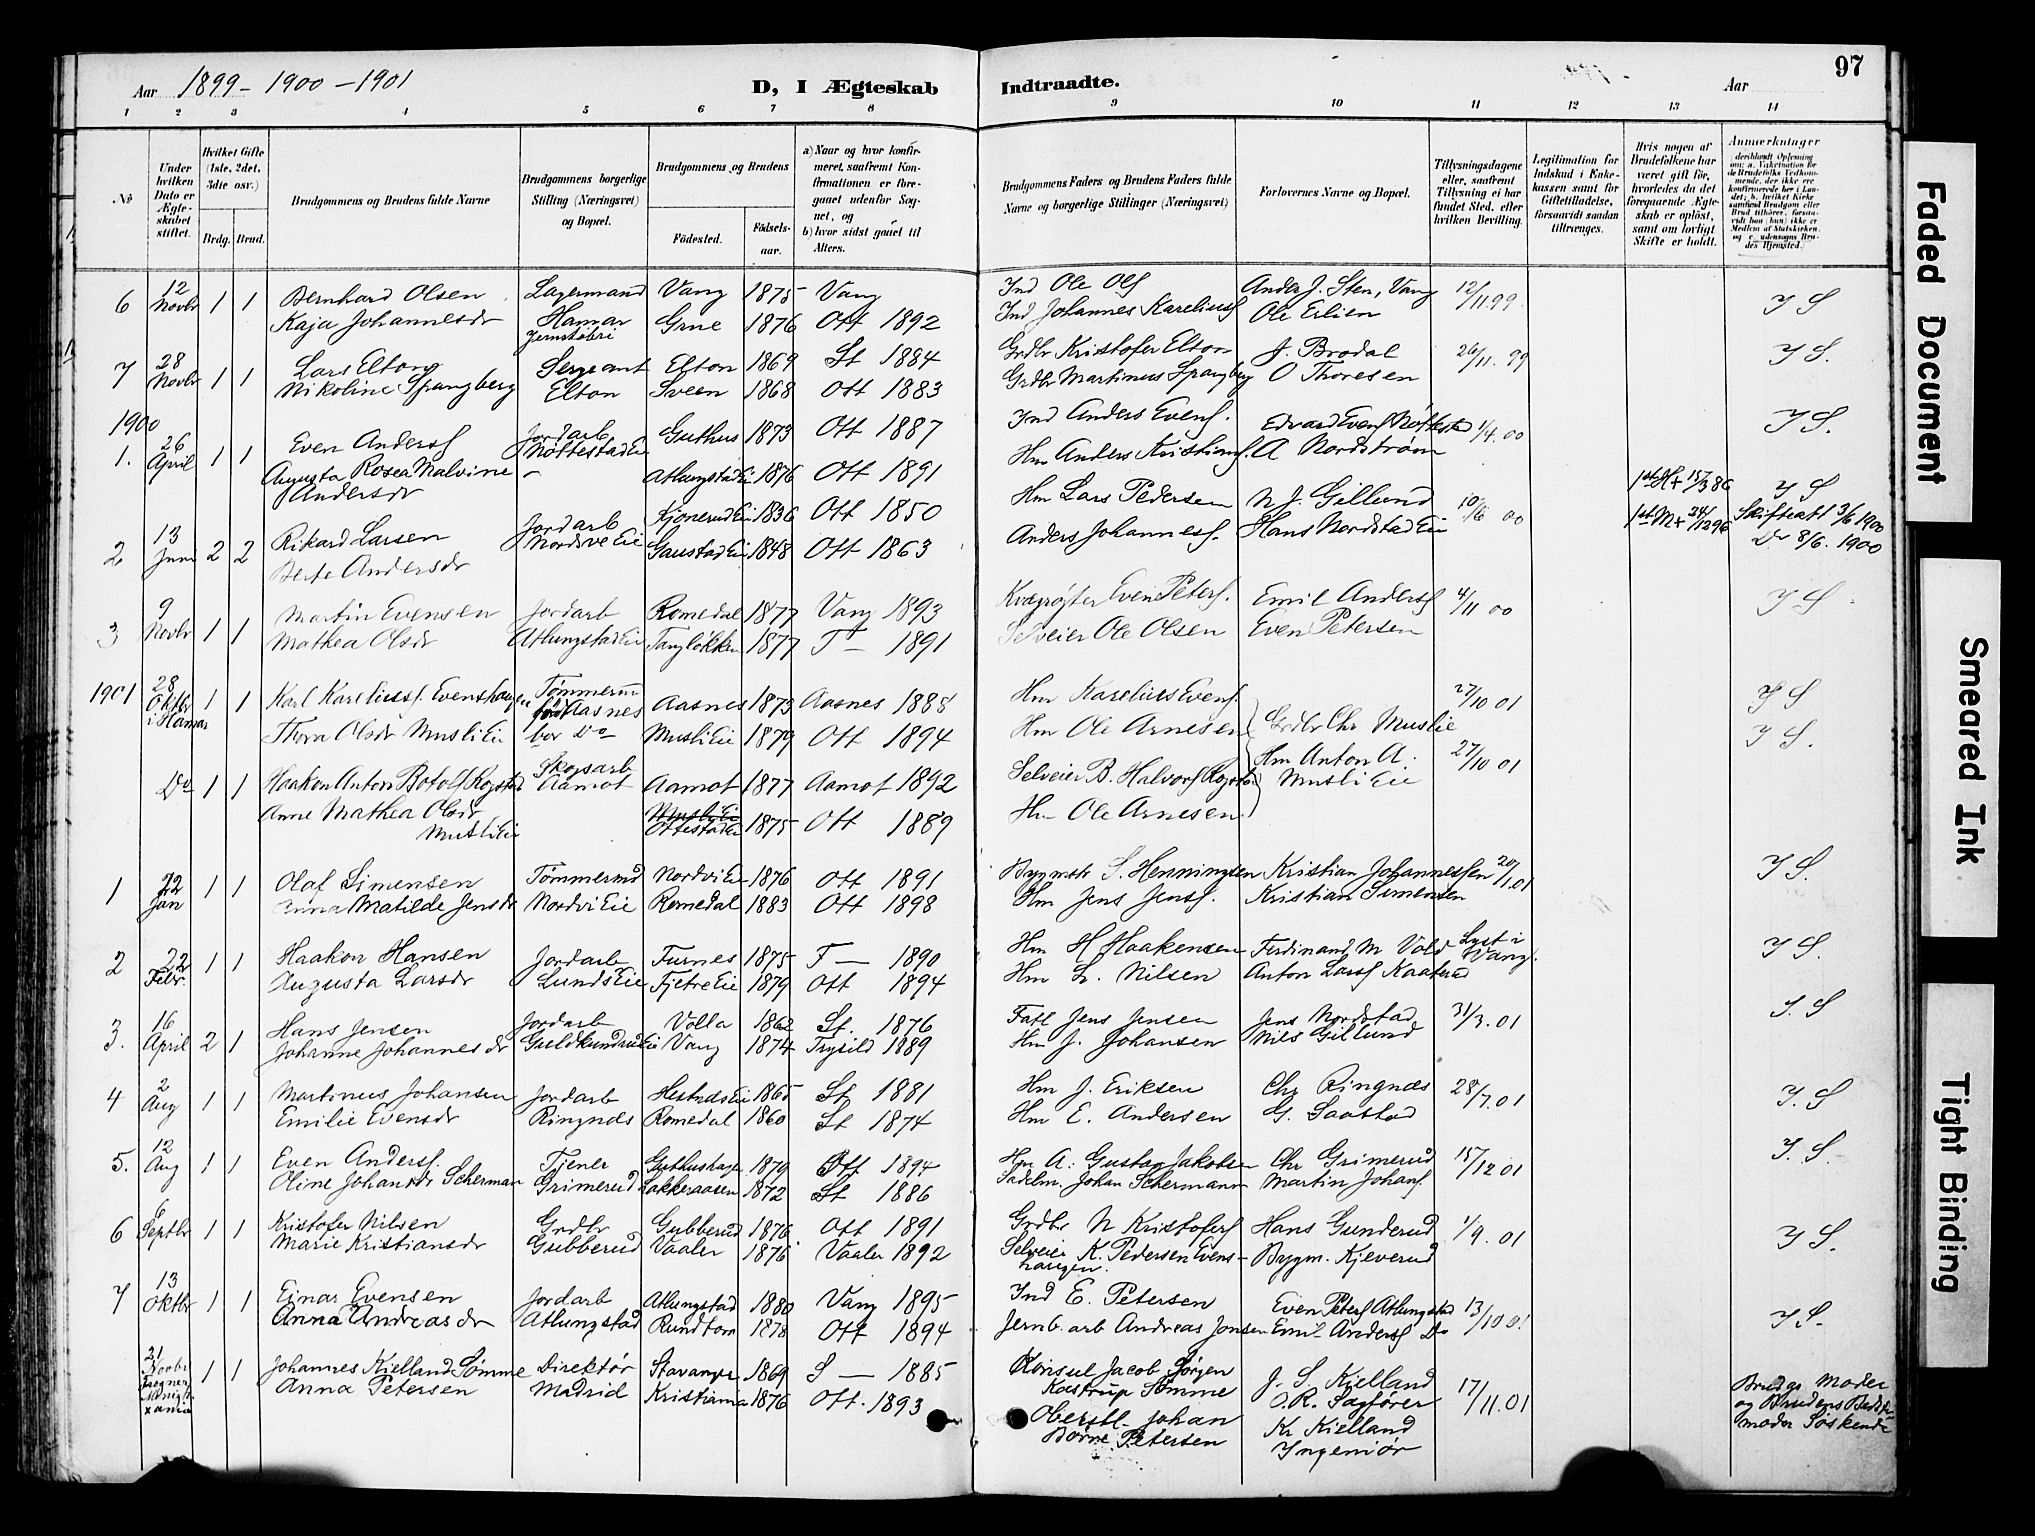 97
Aar 1899 - 1900 - 1901 D, I Ægteskab Indtraadte. Aar
1 2 3 4 5 6 7 8 9 10 11 12 13 14
No
Under hvilken Dato er Ægteskabet stiftet.
Hvilket Gifte (1ste, 2det, 3die osv.)
Brdg. Brud.
Brudgommens og Brudens fulde Navne
Brudgommens borgerlige Stilling (Næringsvei) og Bopæl.
Brudgommens og Brudens
Födested. Födsels-aar.
a) Naar og hvor konfirmeret, saafremt Konfirmationen er foregaaet udenfor Sognet, og
b) hvor sidst gaaet til Alters.
Brudgommens Faders og Brudens Faders fulde Navne og borgerlige Stillinger (Næringsvei)
Forlovernes Navne og Bopæl.
Tillysningsdagene eller, saafremt Tillysning ei har fundet Sted, efter hvilken Bevilling.
Legitimation for Indskud i Enkekassen samt for Giftetilladelse, forsaavidt saadan tiltrænges.
Hvis nogen af Brudefolkene har været gift før, hvorledes da det foregaaende Ægteskab er opløst, samt om lovligt Skifte er holdt.
Anmærkninger
6 12 Novbr 1 1 Bernhard Olsen Lagermand Vang 1875 Vang Ind Ole Ols Anders J. Sten, Vang 12/11.99 I S
Kaja Johannesdr Hamar Jernstöberi 1876 Ott 1892 Ind Johannes Kareliuss Ole Erlien
7 28 Novbr 1 1 Lars Elton Sergeant Elton 1869 St 1884 Grdbr Kristofer Elton J. Brodal 26/11. 99 I S.
Nikoline Spangberg Elton Sveen 1868 Ott 1883 Grdbr Martinus Spangberg O Thoresen
1900
1. 26 April 1 1 Even Anderss Jordarb Nöttestad Ei Guthus 1873 Ott 1887 Ind Anders Evens. Edvard Evens Nöttestad 1/4.00 I S.
Augusta Rosea Malvine Andersdr Atlungstad Ei 1876 Ott 1891 Hm Anders Kristians. A Nordström
2 13 Juni 2 2 Rikard Larsen Jordarb Nordsve Eie Kjonerud Ei 1836 Ott 1850 Hm Lars Pedersen N J. Gillund 10/6 00 1ste H + 15/3 86 I S
Berte Andersdr Gaustad Ei 1848 Ott 1863 Anders Johanness. Hans Nordstad Eie 1ste M + 24/12 96 Skifteatt 3/6 1900
Do 8/6. 1900
3 9 Novbr 1 1 Martin Evensen Jordarb Romedal 1877 Vang 1893 Kvægrögter Even Peters. Emil Anderss 4/11 00 I S
Mathea Olsdr Atlungstad Eie Tanglökken 1877 T — 1891 Selveier Ole Olsen Even Petersen
1901 28 Oktbr i Hamar 1 1 Karl Kareliuss. Evenshaugen Tömmerm Aasnes 1873 Aasnes 1888 Hm Karelius Evens. 27/10 01 I S
Thora Olsdr Musli Eie bor do Musli Eie 1879 Ott 1894 Hm Ole Arnesen Grdbr Chr Muslie I S.
Do 1 1 Haakon Anton Botolfs Rogstad Skogsarb Aamot Aamot 1877 Aamot 1892 Selveier B. Halvors Rogstad Hm Anton A. Musli Eie 27/10 01
Anne Mathea Olsdr Musli Eie Ottestad Ei 1875 Ott 1889 Hm Ole Arnesen
1 22 Jan 1 1 Olaf Simensen Tömmermd Nordvi Eie 1876 Ott 1891 Bygmstr S. Henningsen Kristian Johannessen 20/1.01 I S.
Anna Matilde Jensdr Nordvi Eie Romedal 1883 Ott 1898 Hm Jens Jenss. Kristian Simensen
2 22 Febr. 1 1 Haakon Hansen Jordarb Furnes 1875 F — 1890 Hm H Haakensen Ferdinand M Vold Lyst i Vang. I S.
Augusta Larsdr Lunds Eie Fjetre Eie 1879 Ott 1894 Hm L. Nilsen Anton Larss Kaaterud
3. 16 April 2 1 Hans Jensen Jordarb Volla 1862 St. 1876 Fatl Jens Jensen Jens Nordstad 31/3.01 I. S
Johanne Johannesdr Guldkundrud Ei Vang 1874 Trysild 1889 Hm J. Johansen Nils Gillund
4 2 Aug 1 1 Martinus Johansen Jordarb Hestnes Ei 1865 St 1881 Hm J. Eriksen Chr Ringnæs 28/7.01 I. S
Emilie Evensdr Ringnæs Romedal 1860 St 1874 Hm E. Andersen G. Saastad
5. 12 Aug 1 1 Even Anderss. Tjener Guthushagen 1879 Ott 1894 Hm A. Gustav Jakobsen Chr Grimerud 15/12 01 I. S.
Oline Johansdr Scherman Grimerud Bakkeraasen 1872 St 1886 Sadelm. Johan Schermann Martin Johans.
6 6 Septbr 1 1 Kristofer Nilsen Grdbr Gubberud 1876 Ott 1891 Grdbr N Kristofers Hans Gunderud 1/9.01 I S.
Marie Kristiansdr Gubberud Vaaler 1876 Vaaler 1892 Selveier K. Pedersen Evens-haugen. Bygm. Kjeverud
7 13 Oktbr 1 1 Einar Evensen Jordarb Atlungstad 1880 Vang 1895 Ind E. Petersen Even Peters Atlungstad 13/10 01 I S.
Anna Andreasdr Atlungstad Rundtom 1878 Ott 1894 Jernb. arb Andreas Jonsen Emil Anderss Do
21 Novbr Frogner Menigh. Xania 1 1 Johannes Kielland Sömme Direktör Stavanger 1869 S — 1885 Konsul Jacob Jörgen Kastrup Sömme J. S. Kielland O.R. Sagförer 17/11.01 Brudgs Moder og Brudens Bedste-moder Söskende
Anna Petersen Madrid Kristiania 1876 Ott. 1893 Oberstl. Johan Börre Petersen Kr Kielland Ingeniör
Faded Document
Smeared Ink
Tight Binding